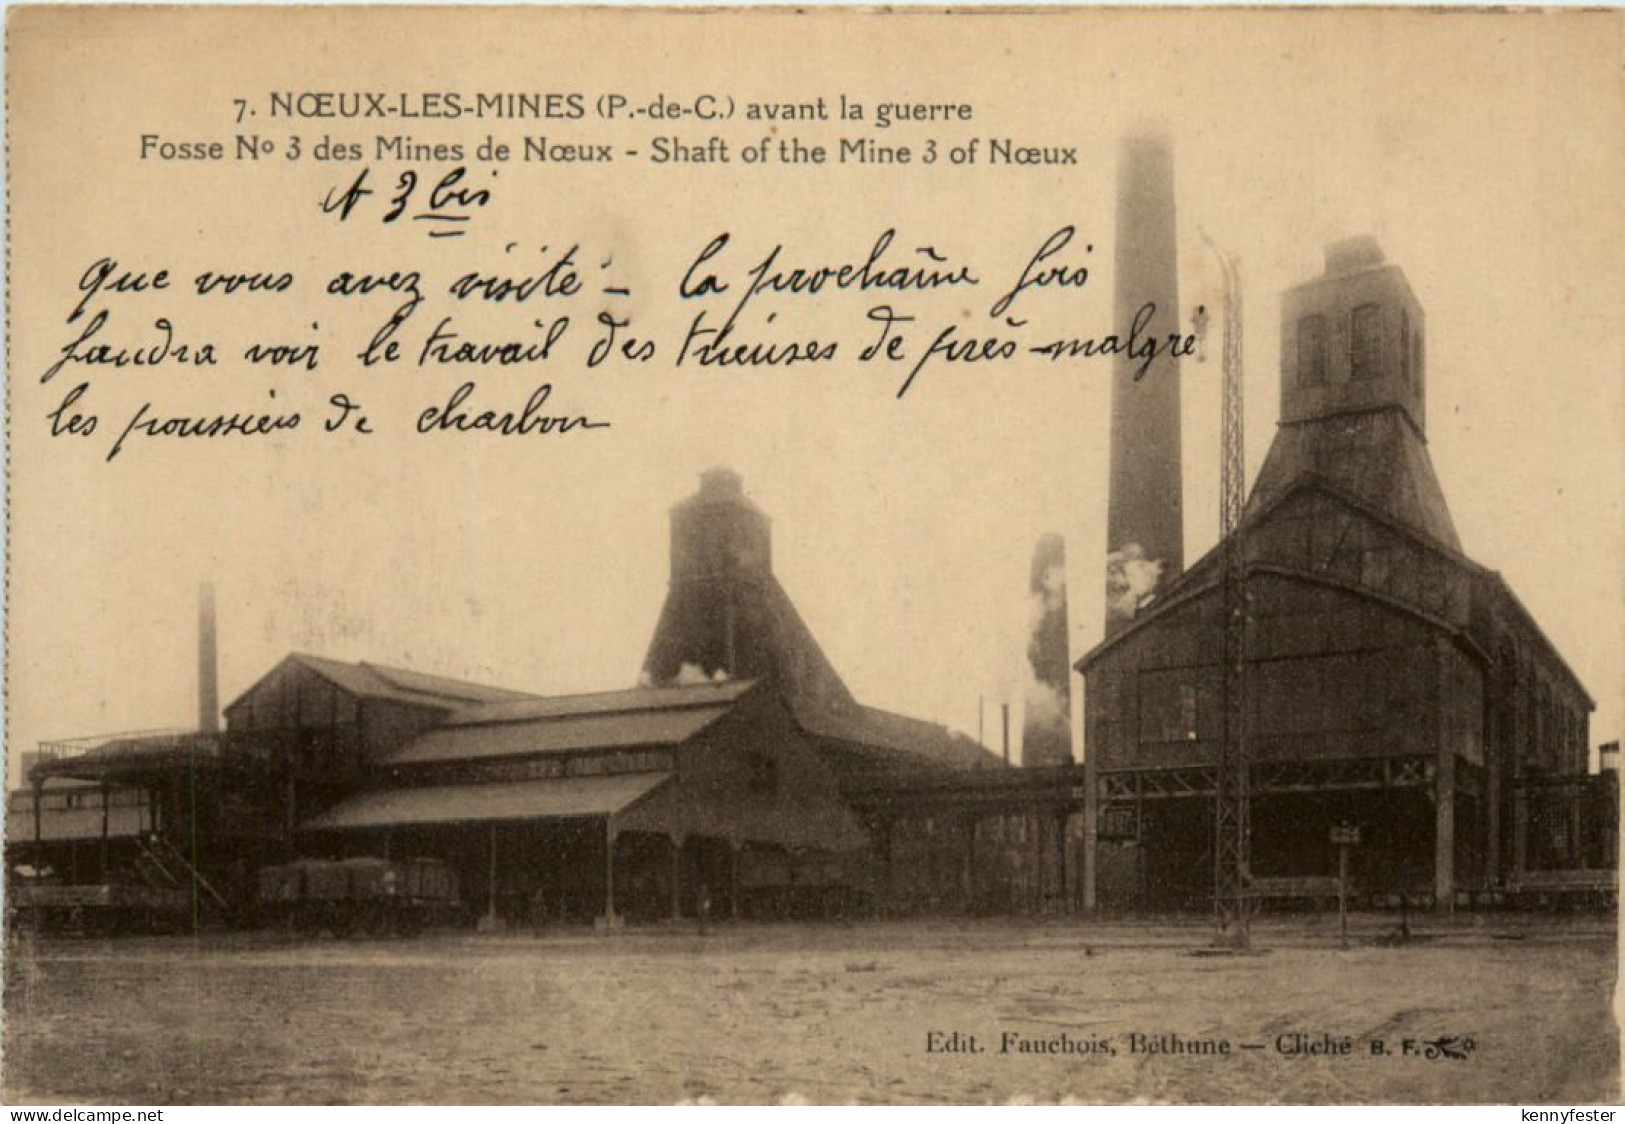 7. NŒUX-LES-MINES (P.-de-C.) avant la guerre
Fosse No 3 des Mines de Nœux - Shaft of the Mine 3 of Nœux
N 3 bis
que vous avez visité - la prochaîne fois
faudra voir le travail des trieuses de près - malgré
les poussiers de charbon
Edit. Fauchois, Béthune — Cliché B. F.
www.delcampe.net
kennyfester